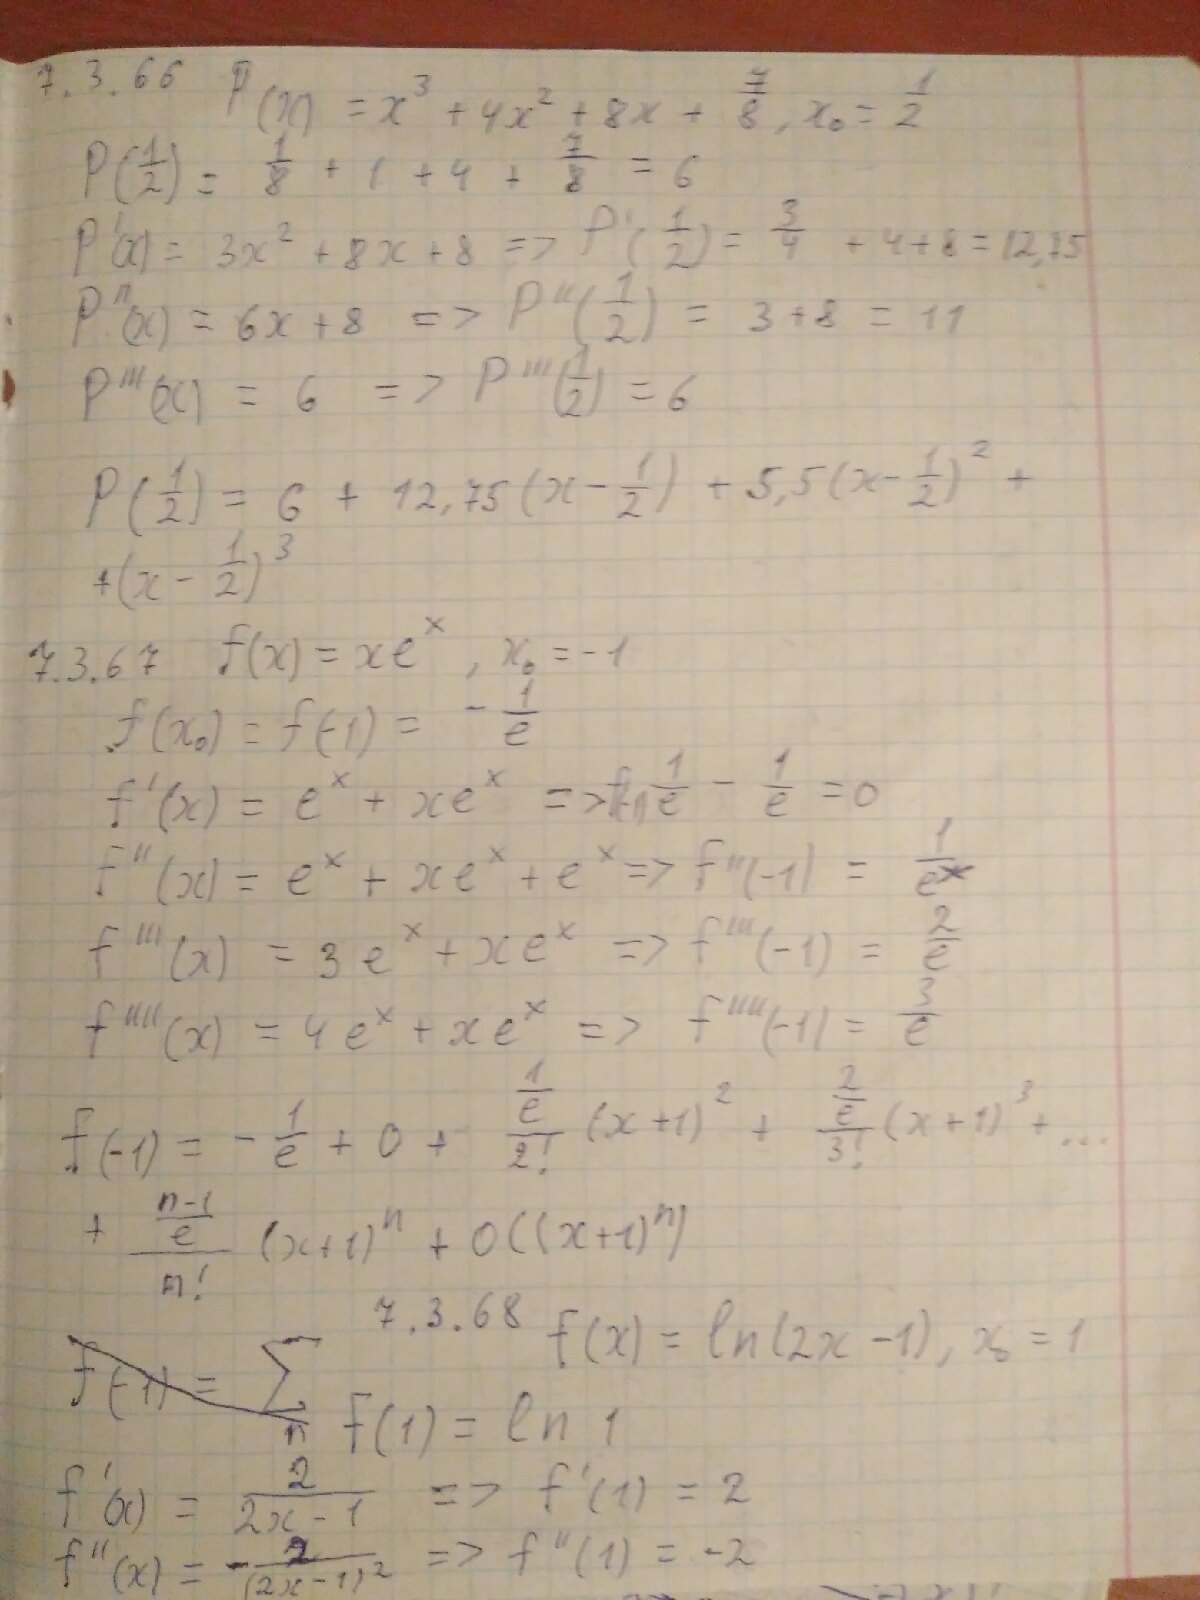 7.3.66 P(x) = x³ + 4x² + 8x + 7/8, x₀ = 1/2
P(1/2) = 1/8 + 1 + 4 + 7/8 = 6
P'(x) = 3x² + 8x + 8 => P'(1/2) = 3/4 + 4 + 8 = 12,75
P''(x) = 6x + 8 => P''(1/2) = 3 + 8 = 11
P'''(x) = 6 => P'''(1/2) = 6
P(1/2) = 6 + 12,75(x - 1/2) + 5,5(x - 1/2)² +
+ (x - 1/2)³
7.3.67 f(x) = xeˣ, x₀ = -1
f(x₀) = f(-1) = - 1/e
f'(x) = eˣ + xeˣ => 1/e - 1/e = 0
f''(x) = eˣ + xeˣ + eˣ => f''(-1) = 1/e
f'''(x) = 3eˣ + xeˣ => f'''(-1) = 2/e
f''''(x) = 4eˣ + xeˣ => f''''(-1) = 3/e
f(-1) = - 1/e + 0 + (1/e)/2! (x+1)² + (2/e)/3! (x+1)³ + ...
+ ((n-1)/e)/n! (x+1)ⁿ + 0((x+1)ⁿ)
7.3.68 f(x) = ln(2x - 1), x₀ = 1
f(-1) = Σ n
f(1) = ln 1
f'(x) = 2/(2x - 1) => f'(1) = 2
f''(x) = - 2/(2x-1)² => f''(1) = -2